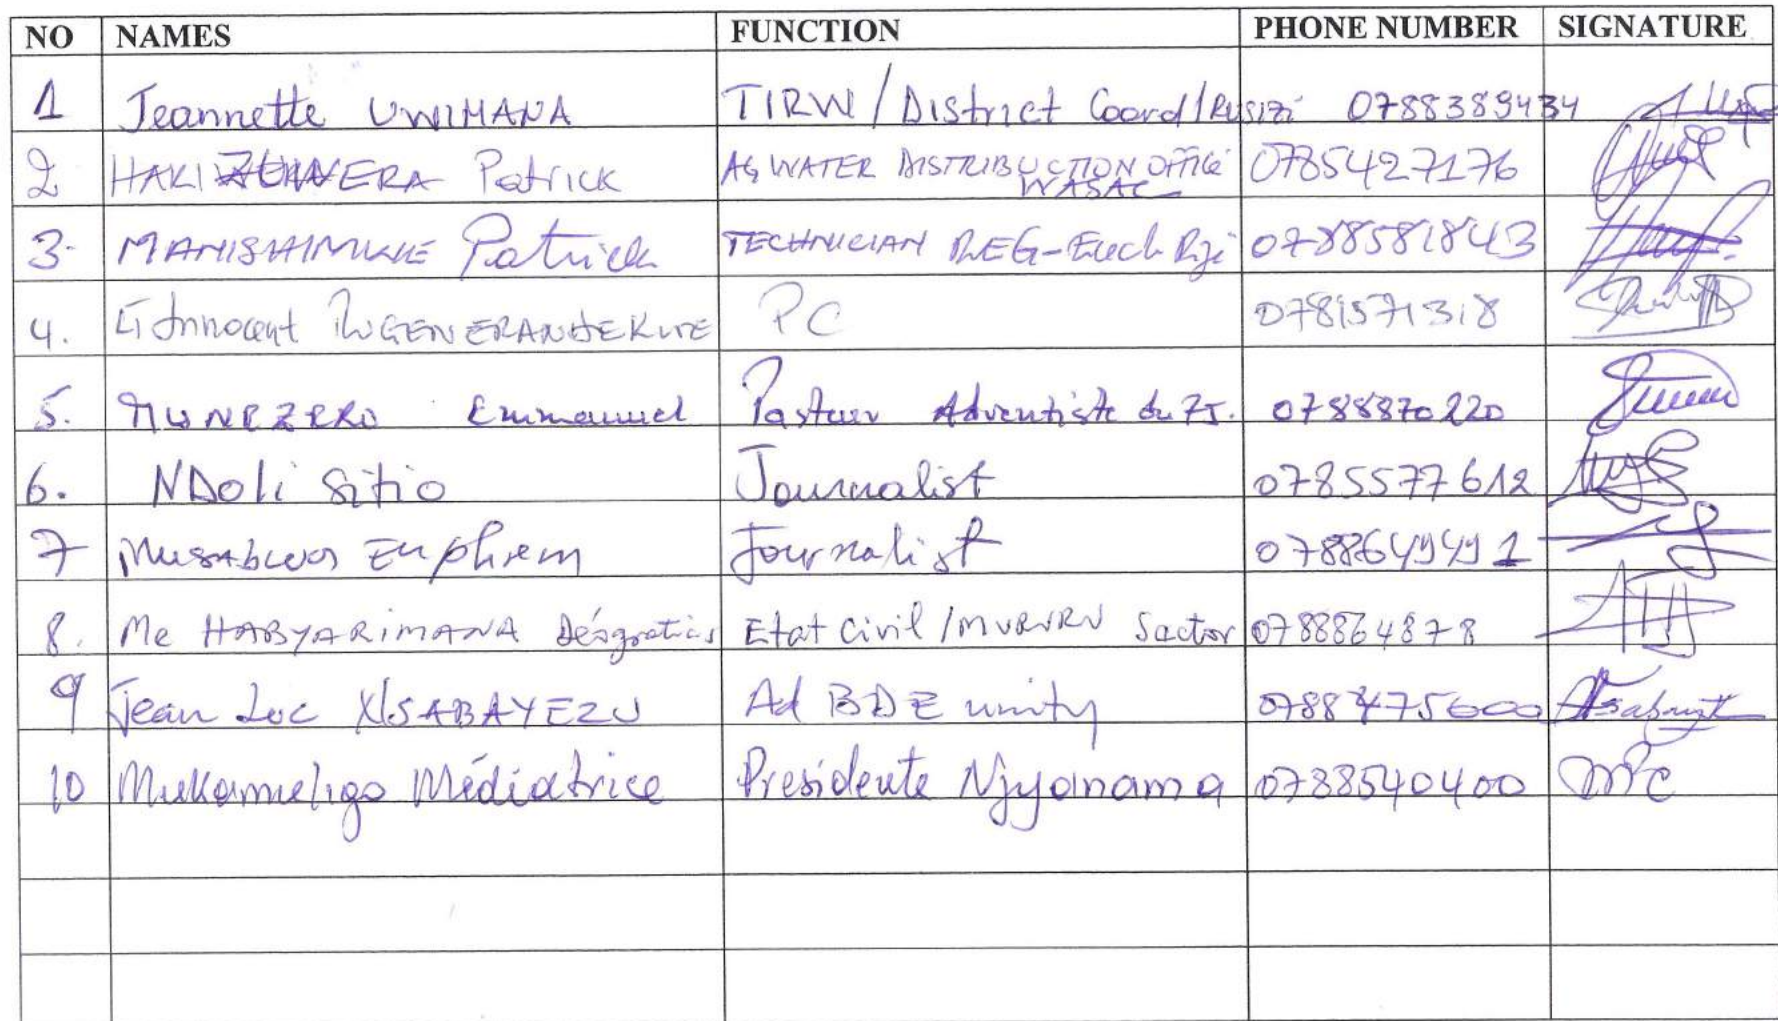 NO NAMES FUNCTION PHONE NUMBER SIGNATURE
1 Jeannette UWIMANA TIRW/District Coord/Rusizi 0788389434
2 Patrick AG WATER DISTRIBUCTION OFFICE 0785427176
WASAC
3. MANISHIMWE Patrick TECHNICIAN REG- 0788581843
4. Innocent PC 0781571318
5. MUNEZERO Emmanuel Pasteur Adventiste du 7J. 0788870220
6. NDoli Sitio Journalist 0785577612
7 Musabwa Euphrem Journalist 0788649491
8. Me HABYARIMANA Déogratias Etat civil/MURURU Sector 0788864878
9 Jean Luc NSABAYEZU Ad BDE unity 0788475600
10 Mukamuligo Médiatrice Presidente Njyanama 0788540400